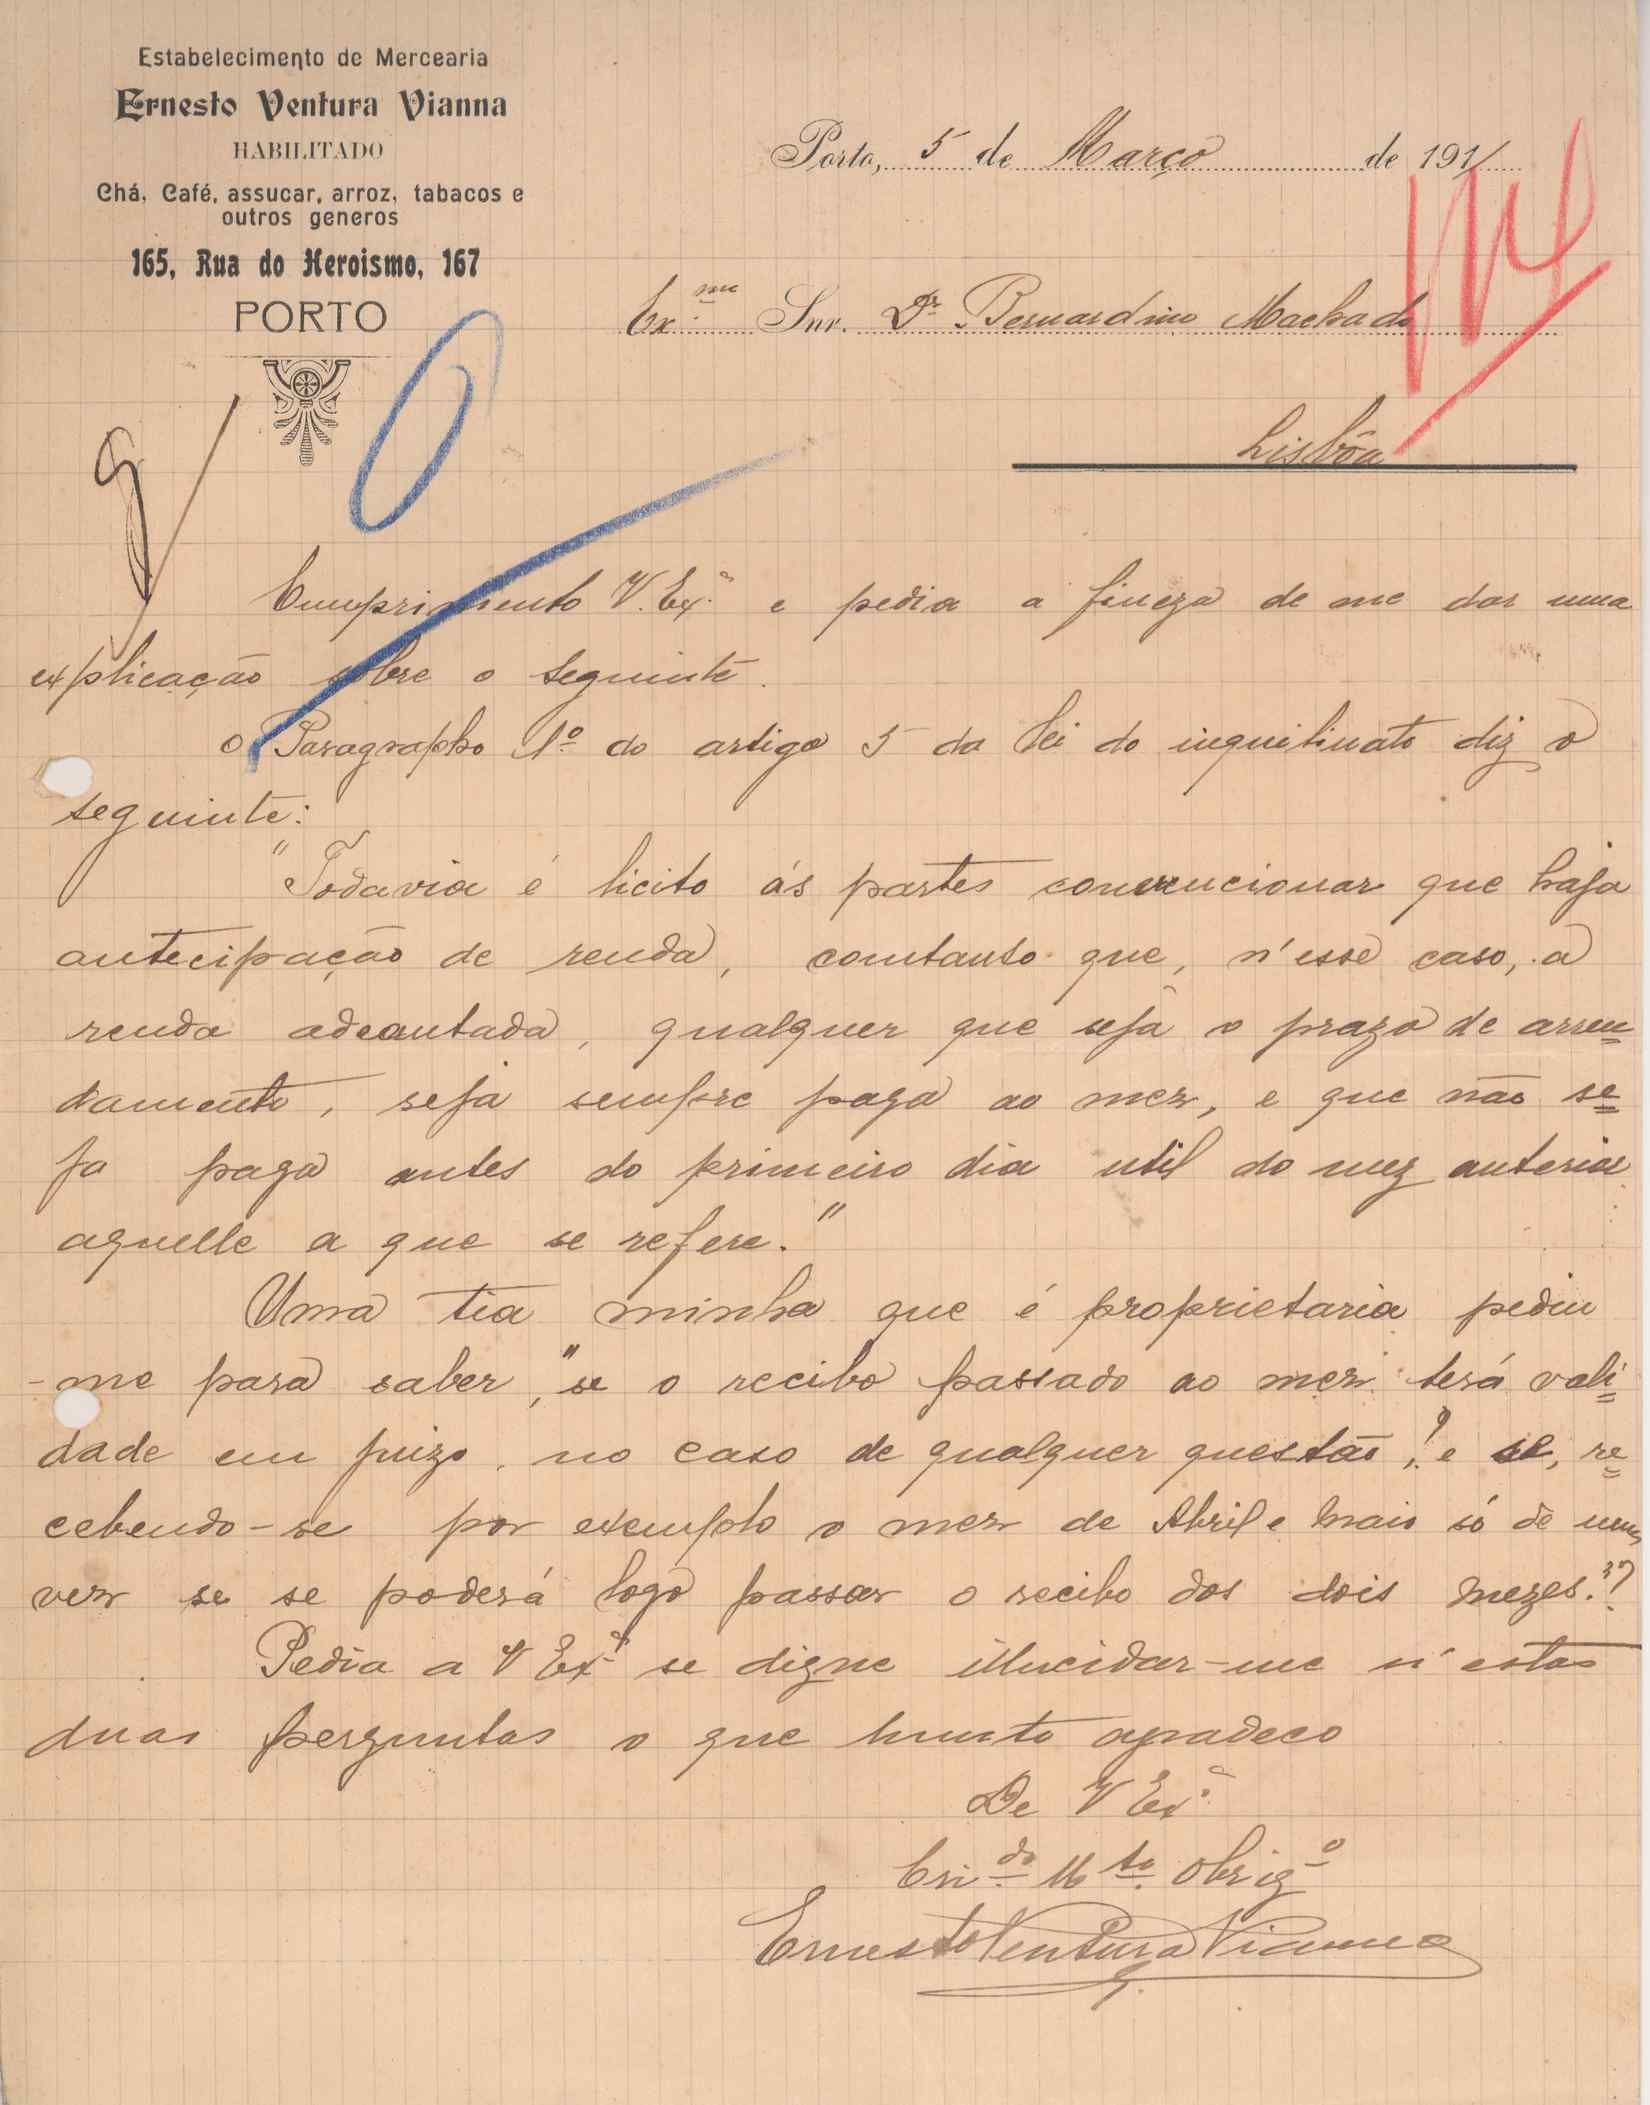 Estabelecimento de Mercearia
Ernesto Ventura Vianna
HABILITADO
Chá, Café, assucar, arroz, tabacos e
outros generos
165, Rua do Heroismo, 167
PORTO
Porto, 5 de Março de 1911
Ex.mo Snr. Dr. Bernardino Machado
Lisbôa
Cumprimento V. Ex.ª e pedia a fineza de me dar uma
explicação sobre o seguinte.
O Paragrapho 1º do artigo 5 da lei do inquilinato diz o
seguinte:
"Todavia é licito ás partes convencionar que haja
antecipação de renda, comtanto que, n'esse caso, a
renda adeantada, qualquer que seja o prazo de arren=
damento, seja sempre paga ao mez, e que não se=
ja paga antes do primeiro dia util do mez anterior
aquelle a que se refere."
Uma tia minha que é proprietaria pediu
-me para saber, "se o recibo passado ao mez terá vali=
dade em juizo, no caso de qualquer questão,? e se, re=
cebendo-se por exemplo o mez de Abril e Maio só de uma
vez se se poderá logo passar o recibo dos dois mezes?"
Pedia a V Ex.ª se digne illucidar-me n'estas
duas perguntas o que muito agradeco
De V Ex.ª
Cri.do M.to Obrig.º
Ernesto Ventura Vianna